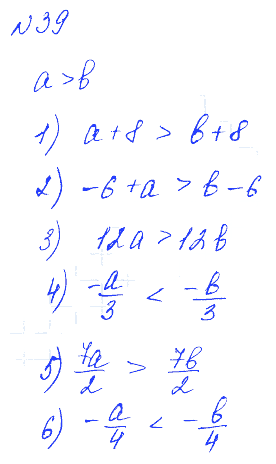 №39
a > b
1) a + 8 > b + 8
2) -6 + a > b - 6
3) 12a > 12b
4) -a/3 < -b/3
5) 7a/2 > 7b/2
6) -a/4 < -b/4